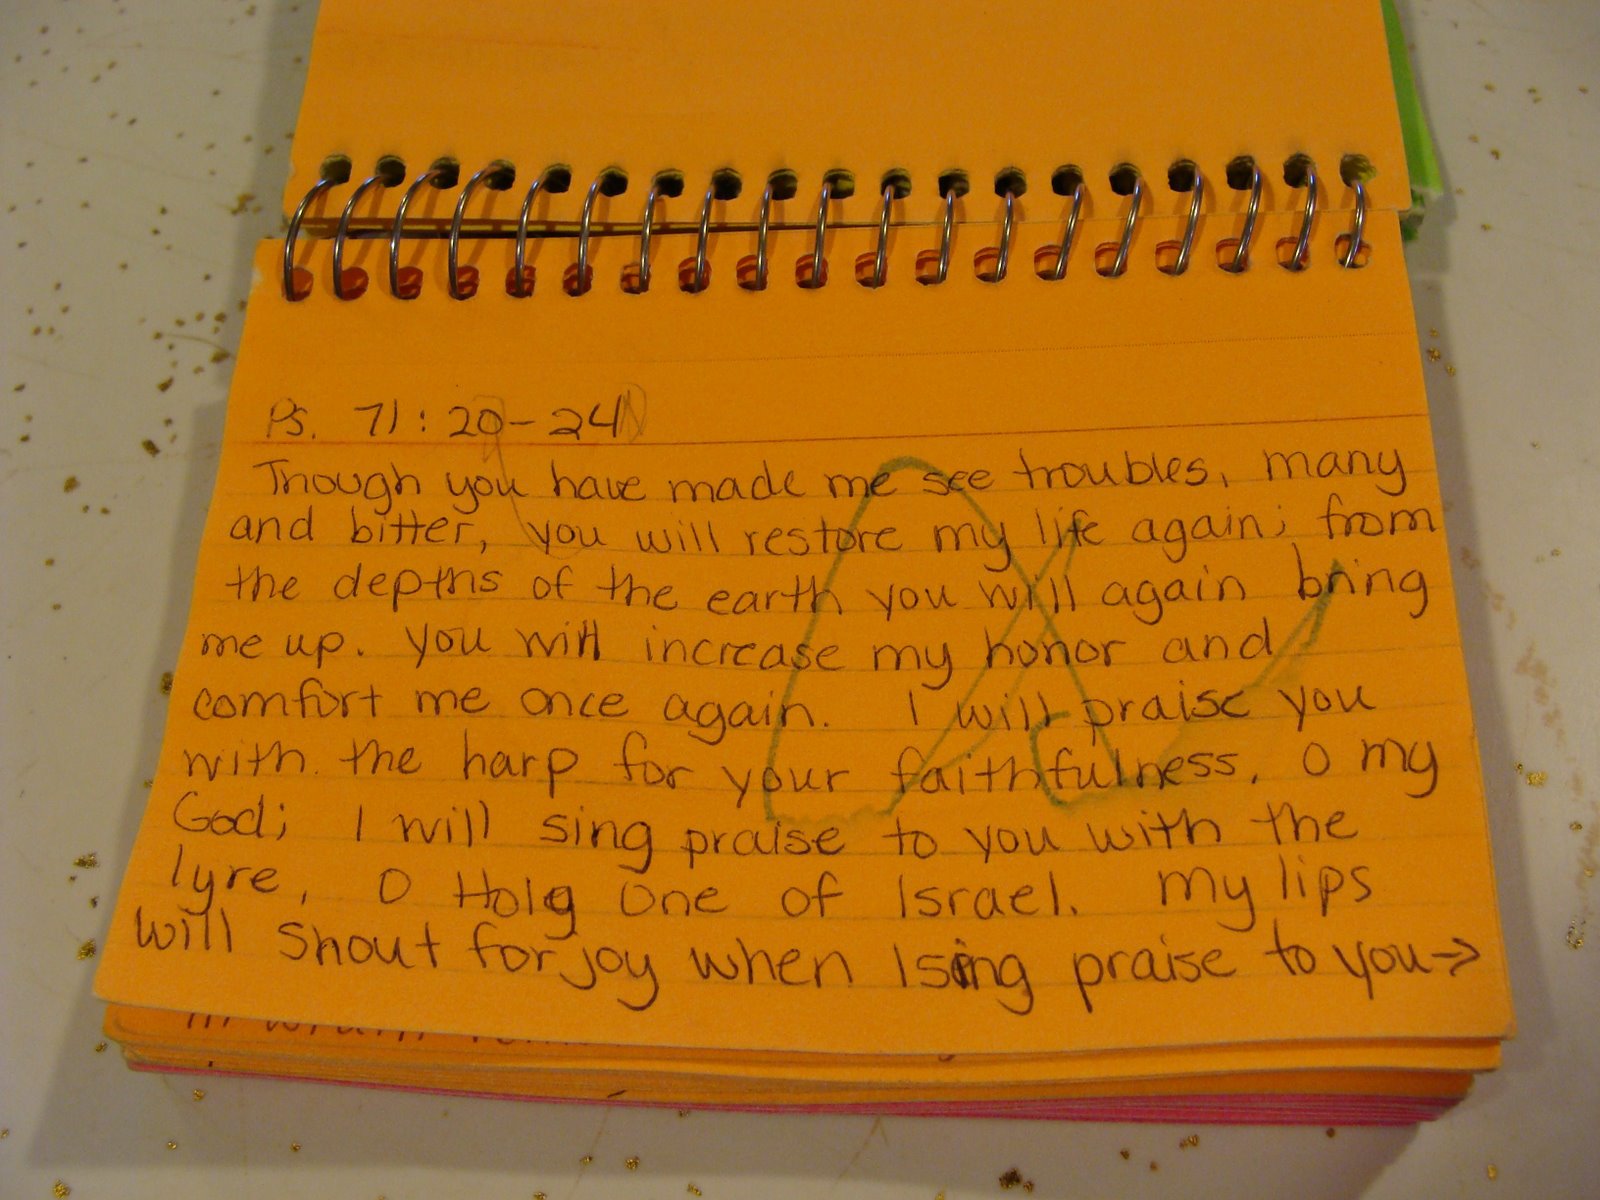 Ps. 71:20-24
Though you have made me see troubles, many
and bitter, you will restore my life again; from
the depths of the earth you will again bring
me up. You will increase my honor and
comfort me once again. I will praise you
with the harp for your faithfulness, O my
God; I will sing praise to you with the
lyre, O Holy One of Israel. My lips
will shout for joy when I sing praise to you→